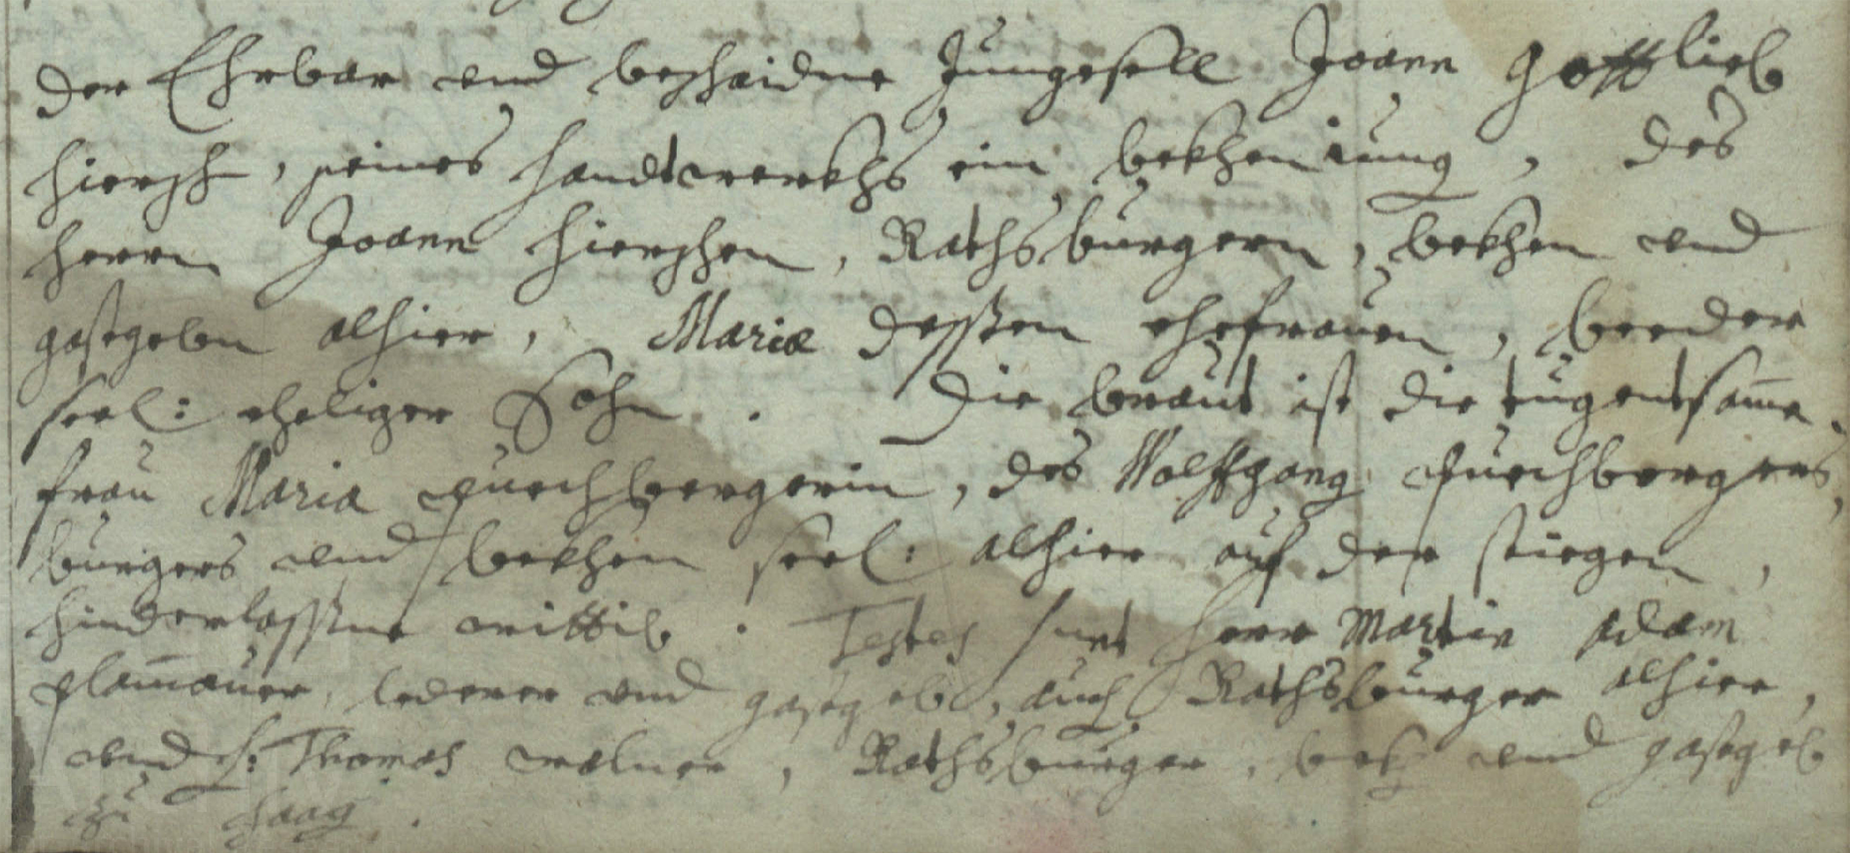 Der Ehrbar und beschaidne Jungesell Joann Gottlieb
Hiersch, seines Handtwerkhs ein bekhen iung, des
Herrn Joann Hierschen, Rathsburgern, bekhen und
gastgeben alhier, Mariæ dessen ehefrauen, beeder
seel: eheliger Sohn. Die braut ist die tugentsame
frau Maria puechbergerin, des Wolffgang puechbergers,
burgers und bekhen seel: alhier auf der stiegen,
hinderlassne wittib. Testes sunt Herr Martin Adam
plamauer, lederer und gastgeb, auch Rathsburger alhier,
und H: Thomas walner, Rathsburger, bekh und gastgeb
zu Haag.